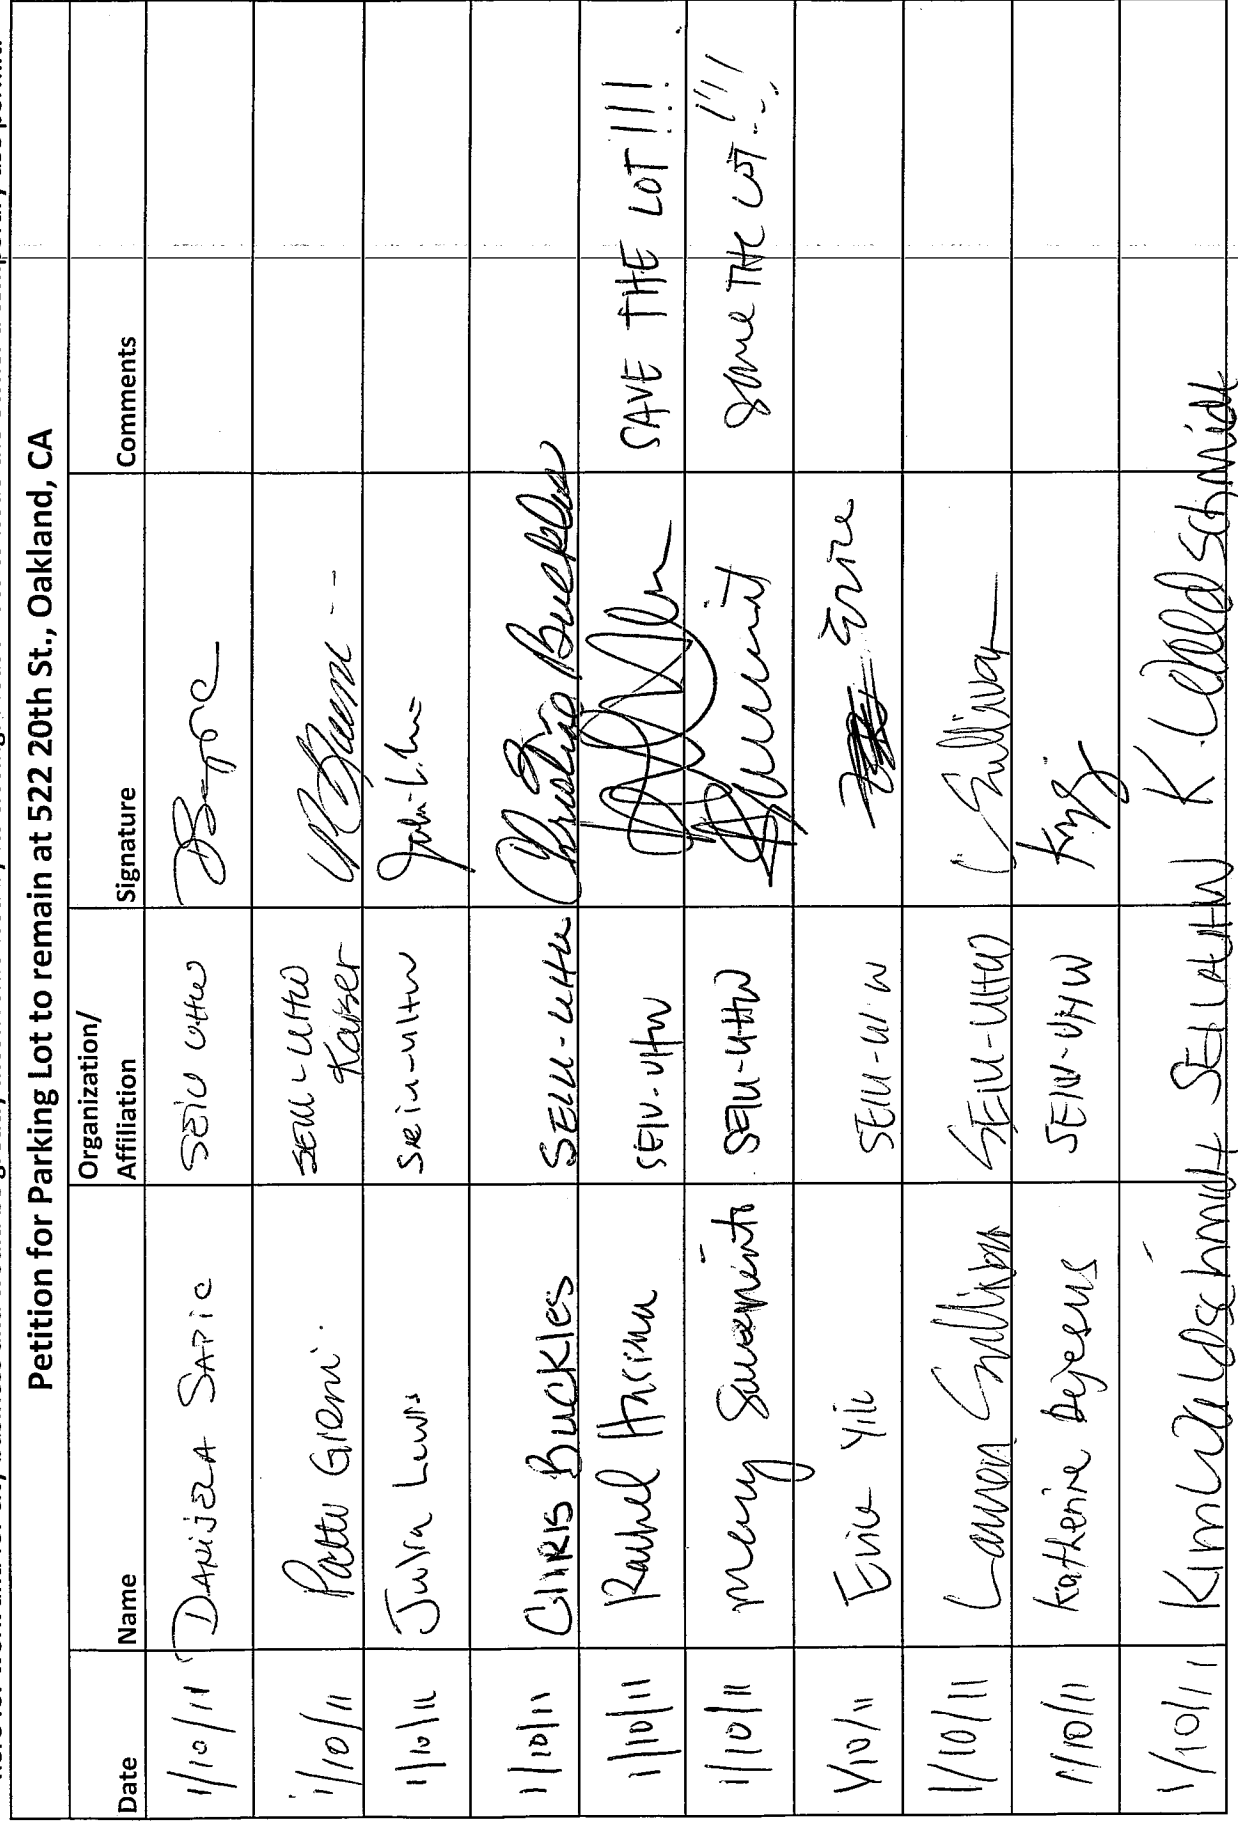 Petition for Parking Lot to remain at 522 20th St., Oakland, CA
Date Name Organization/ Affiliation Signature Comments
1/10/11 DANIJELA SAPIC SEIU UHW
1/10/11 Patti SEIU-UHW Kaiser
1/10/11 Julia Lewis SEIU-UHW
1/10/11 CHRIS BUCKles SEIU-UHW Christine Buckles
1/10/11 Rachel SEIU-UHW SAVE THE LOT!!!
1/10/11 mary SEIU-UHW Save THE LOT!!!
1/10/11 SEIU-UHW
1/10/11 Sullivan SEIU-UHW Sullivan
1/10/11 Katherine Dejesus SEIU-UHW
1/10/11 Kim Waldschmidt SEIU UHW K. Waldschmidt